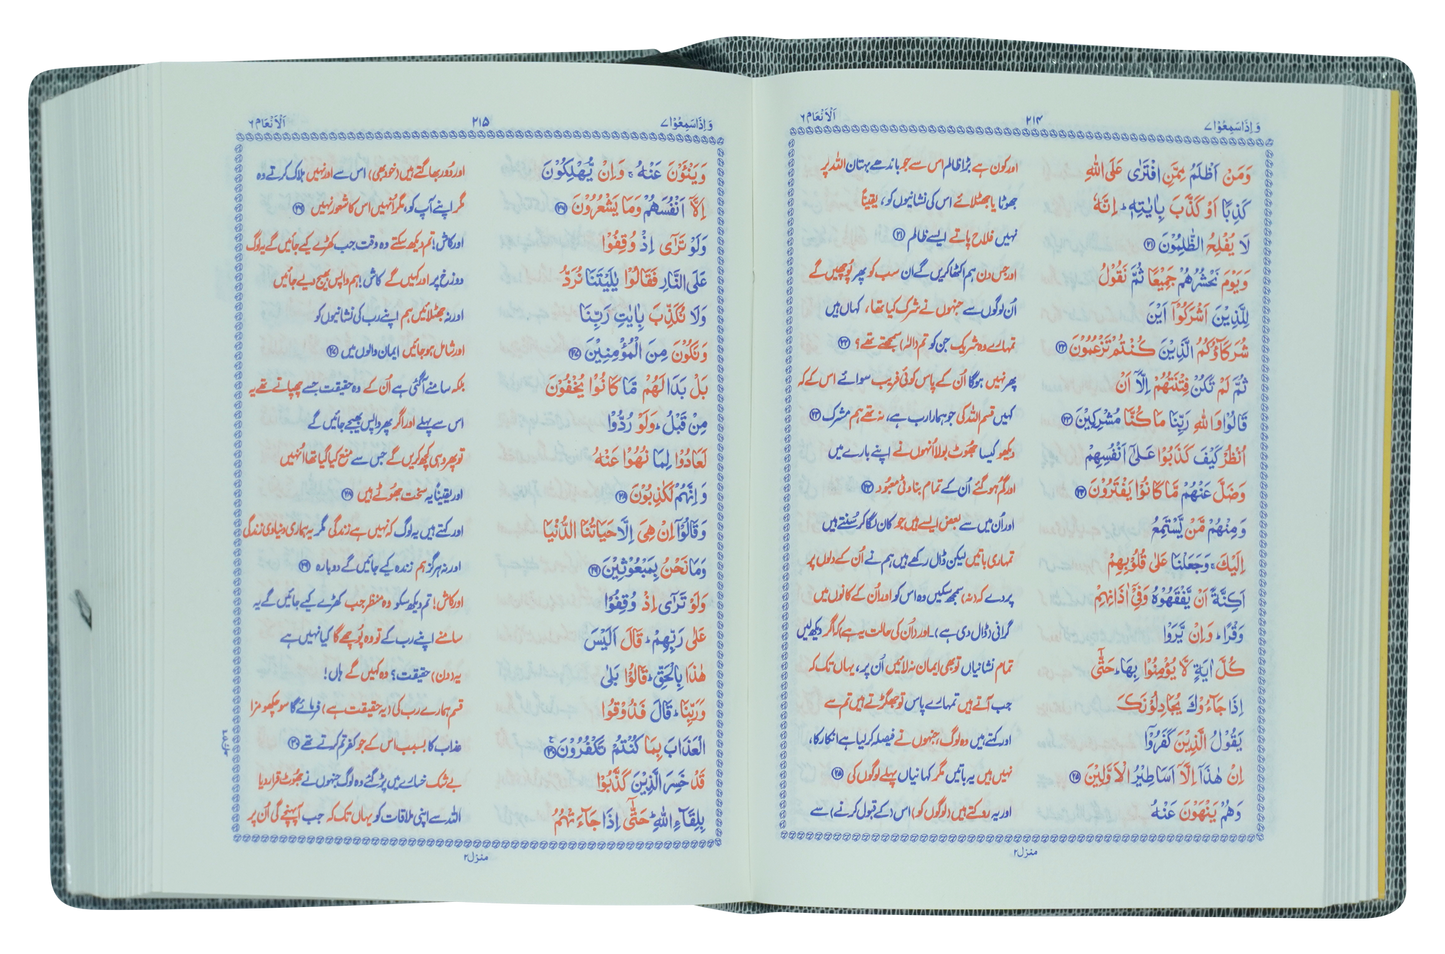 وَاِذَاسَمِعُوْا ۷
۲۱۴
اَلْاَنْعَام ۶
وَمَنْ اَظْلَمُ مِمَّنِ افْتَرٰى عَلَى اللّٰهِ
اور کون ہے بڑا ظالم اس سے جو باندھے بہتان اللہ پر
كَذِبًا اَوْ كَذَّبَ بِاٰيٰتِهٖ ؕ اِنَّهٗ
جھوٹا یا جھٹلائے اس کی نشانیوں کو، یقیناً
لَا يُفْلِحُ الظّٰلِمُوْنَ ۲۱
نہیں فلاح پاتے ایسے ظالم ۲۱
وَيَوْمَ نَحْشُرُهُمْ جَمِيْعًا ثُمَّ نَقُوْلُ
اور جس دن ہم اکٹھا کریں گے ان سب کو پھر پُوچھیں گے
لِلَّذِيْنَ اَشْرَكُوْۤا اَيْنَ
اُن لوگوں سے جنہوں نے شرک کیا تھا، کہاں ہیں
شُرَكَآؤُكُمُ الَّذِيْنَ كُنْتُمْ تَزْعُمُوْنَ ۲۲
تمہارے وہ شریک جن کو تم (الٰہ) سمجھتے تھے؟ ۲۲
ثُمَّ لَمْ تَكُنْ فِتْنَتُهُمْ اِلَّاۤ اَنْ
پھر نہیں ہوگا اُن کے پاس کوئی فریب سوائے اس کے کہ
قَالُوْا وَاللّٰهِ رَبِّنَا مَا كُنَّا مُشْرِكِيْنَ ۲۳
کہیں قسم اللہ کی جو ہمارا رب ہے، نہ تھے ہم مشرک ۲۳
اُنْظُرْ كَيْفَ كَذَبُوْا عَلٰۤى اَنْفُسِهِمْ
دیکھو کیسا جھوٹ بولا اُنہوں نے اپنے بارے میں
وَضَلَّ عَنْهُمْ مَّا كَانُوْا يَفْتَرُوْنَ ۲۴
اور گم ہو گئے اُن کے تمام بناوٹی معبود ۲۴
وَمِنْهُمْ مَّنْ يَّسْتَمِعُ
اور اُن میں سے بعض ایسے ہیں جو کان لگا کر سُنتے ہیں
اِلَيْكَ ۚ وَجَعَلْنَا عَلٰى قُلُوْبِهِمْ
تمہاری باتیں لیکن ڈال رکھے ہیں ہم نے اُن کے دلوں پر
اَكِنَّةً اَنْ يَّفْقَهُوْهُ وَفِيْۤ اٰذَانِهِمْ
پردے کہ (نہ) سمجھ سکیں وہ اس کو اور اُن کے کانوں میں
وَقْرًا ؕ وَاِنْ يَّرَوْا
گرانی (ڈال دی ہے)۔ اور (اُن کی حالت یہ ہے) کہ اگر دیکھ لیں
كُلَّ اٰيَةٍ لَّا يُؤْمِنُوْا بِهَا ؕ حَتّٰۤى
تمام نشانیاں تو بھی ایمان نہ لائیں اُن پر، یہاں تک کہ
اِذَا جَآءُوْكَ يُجَادِلُوْنَكَ
جب آتے ہیں تمہارے پاس تو جھگڑتے ہیں تم سے
يَقُوْلُ الَّذِيْنَ كَفَرُوْۤا
اور کہتے ہیں وہ لوگ، جنہوں نے فیصلہ کر لیا ہے انکار کا،
اِنْ هٰذَاۤ اِلَّاۤ اَسَاطِيْرُ الْاَوَّلِيْنَ ۲۵
نہیں ہیں یہ باتیں مگر کہانیاں پہلے لوگوں کی ۲۵
وَهُمْ يَنْهَوْنَ عَنْهُ
اور یہ روکتے ہیں (لوگوں کو) اس (کے قبول کرنے) سے
منزل ۲
وَاِذَاسَمِعُوْا ۷
۲۱۵
اَلْاَنْعَام ۶
وَيَنْئَوْنَ عَنْهُ ۚ وَاِنْ يُّهْلِكُوْنَ
اور دُور بھاگتے ہیں (خود بھی) اس سے اور نہیں ہلاک کرتے وہ
اِلَّاۤ اَنْفُسَهُمْ وَمَا يَشْعُرُوْنَ ۲۶
مگر اپنے آپ کو، مگر اُنہیں اس کا شعور نہیں ۲۶
وَلَوْ تَرٰۤى اِذْ وُقِفُوْا
اور کاش! تم دیکھ سکتے وہ وقت جب کھڑے کیے جائیں گے یہ لوگ
عَلَى النَّارِ فَقَالُوْا يٰلَيْتَنَا نُرَدُّ
دوزخ پر اور کہیں گے کاش! ہم واپس بھیج دیے جائیں
وَلَا نُكَذِّبَ بِاٰيٰتِ رَبِّنَا
اور نہ جھٹلائیں ہم اپنے رب کی نشانیوں کو
وَنَكُوْنَ مِنَ الْمُؤْمِنِيْنَ ۲۷
اور شامل ہو جائیں ایمان والوں میں ۲۷
بَلْ بَدَا لَهُمْ مَّا كَانُوْا يُخْفُوْنَ
بلکہ سامنے آ گئی ہے اُن کے وہ حقیقت جسے چھپاتے تھے یہ
مِنْ قَبْلُ ؕ وَلَوْ رُدُّوْا
اس سے پہلے اور اگر پھر واپس بھیجے جائیں گے
لَعَادُوْا لِمَا نُهُوْا عَنْهُ
تو پھر وہی کچھ کریں گے جس سے منع کیا گیا تھا اُنہیں
وَاِنَّهُمْ لَكٰذِبُوْنَ ۲۸
اور یقیناً یہ سخت جھوٹے ہیں ۲۸
وَقَالُوْۤا اِنْ هِيَ اِلَّا حَيَاتُنَا الدُّنْيَا
اور کہتے ہیں یہ لوگ کہ نہیں ہے زندگی مگر یہ ہماری دنیاوی زندگی
وَمَا نَحْنُ بِمَبْعُوْثِيْنَ ۲۹
اور نہ ہرگز ہم زندہ کیے جائیں گے دوبارہ ۲۹
وَلَوْ تَرٰۤى اِذْ وُقِفُوْا
اور کاش! تم دیکھ سکو وہ منظر جب کھڑے کیے جائیں گے یہ
عَلٰى رَبِّهِمْ ؕ قَالَ اَلَيْسَ
سامنے اپنے رب کے تو وہ پُوچھے گا کیا نہیں ہے
هٰذَا بِالْحَقِّ ؕ قَالُوْا بَلٰى
یہ (دن) حقیقت؟ وہ کہیں گے ہاں!
وَرَبِّنَا ؕ قَالَ فَذُوْقُوا
قسم ہمارے رب کی (یہ حقیقت ہے)، فرمائے گا سو چکھو مزا
الْعَذَابَ بِمَا كُنْتُمْ تَكْفُرُوْنَ ۳۰
عذاب کا بسبب اس کے جو کفر تم کرتے تھے ۳۰
قَدْ خَسِرَ الَّذِيْنَ كَذَّبُوْا
بے شک خسارے میں پڑ گئے وہ لوگ جنہوں نے جھوٹ قرار دیا
بِلِقَآءِ اللّٰهِ ؕ حَتّٰۤى اِذَا جَآءَتْهُمُ
اللہ سے اپنی ملاقات کو یہاں تک کہ جب آ پہنچے گی اُن پر
منزل ۲